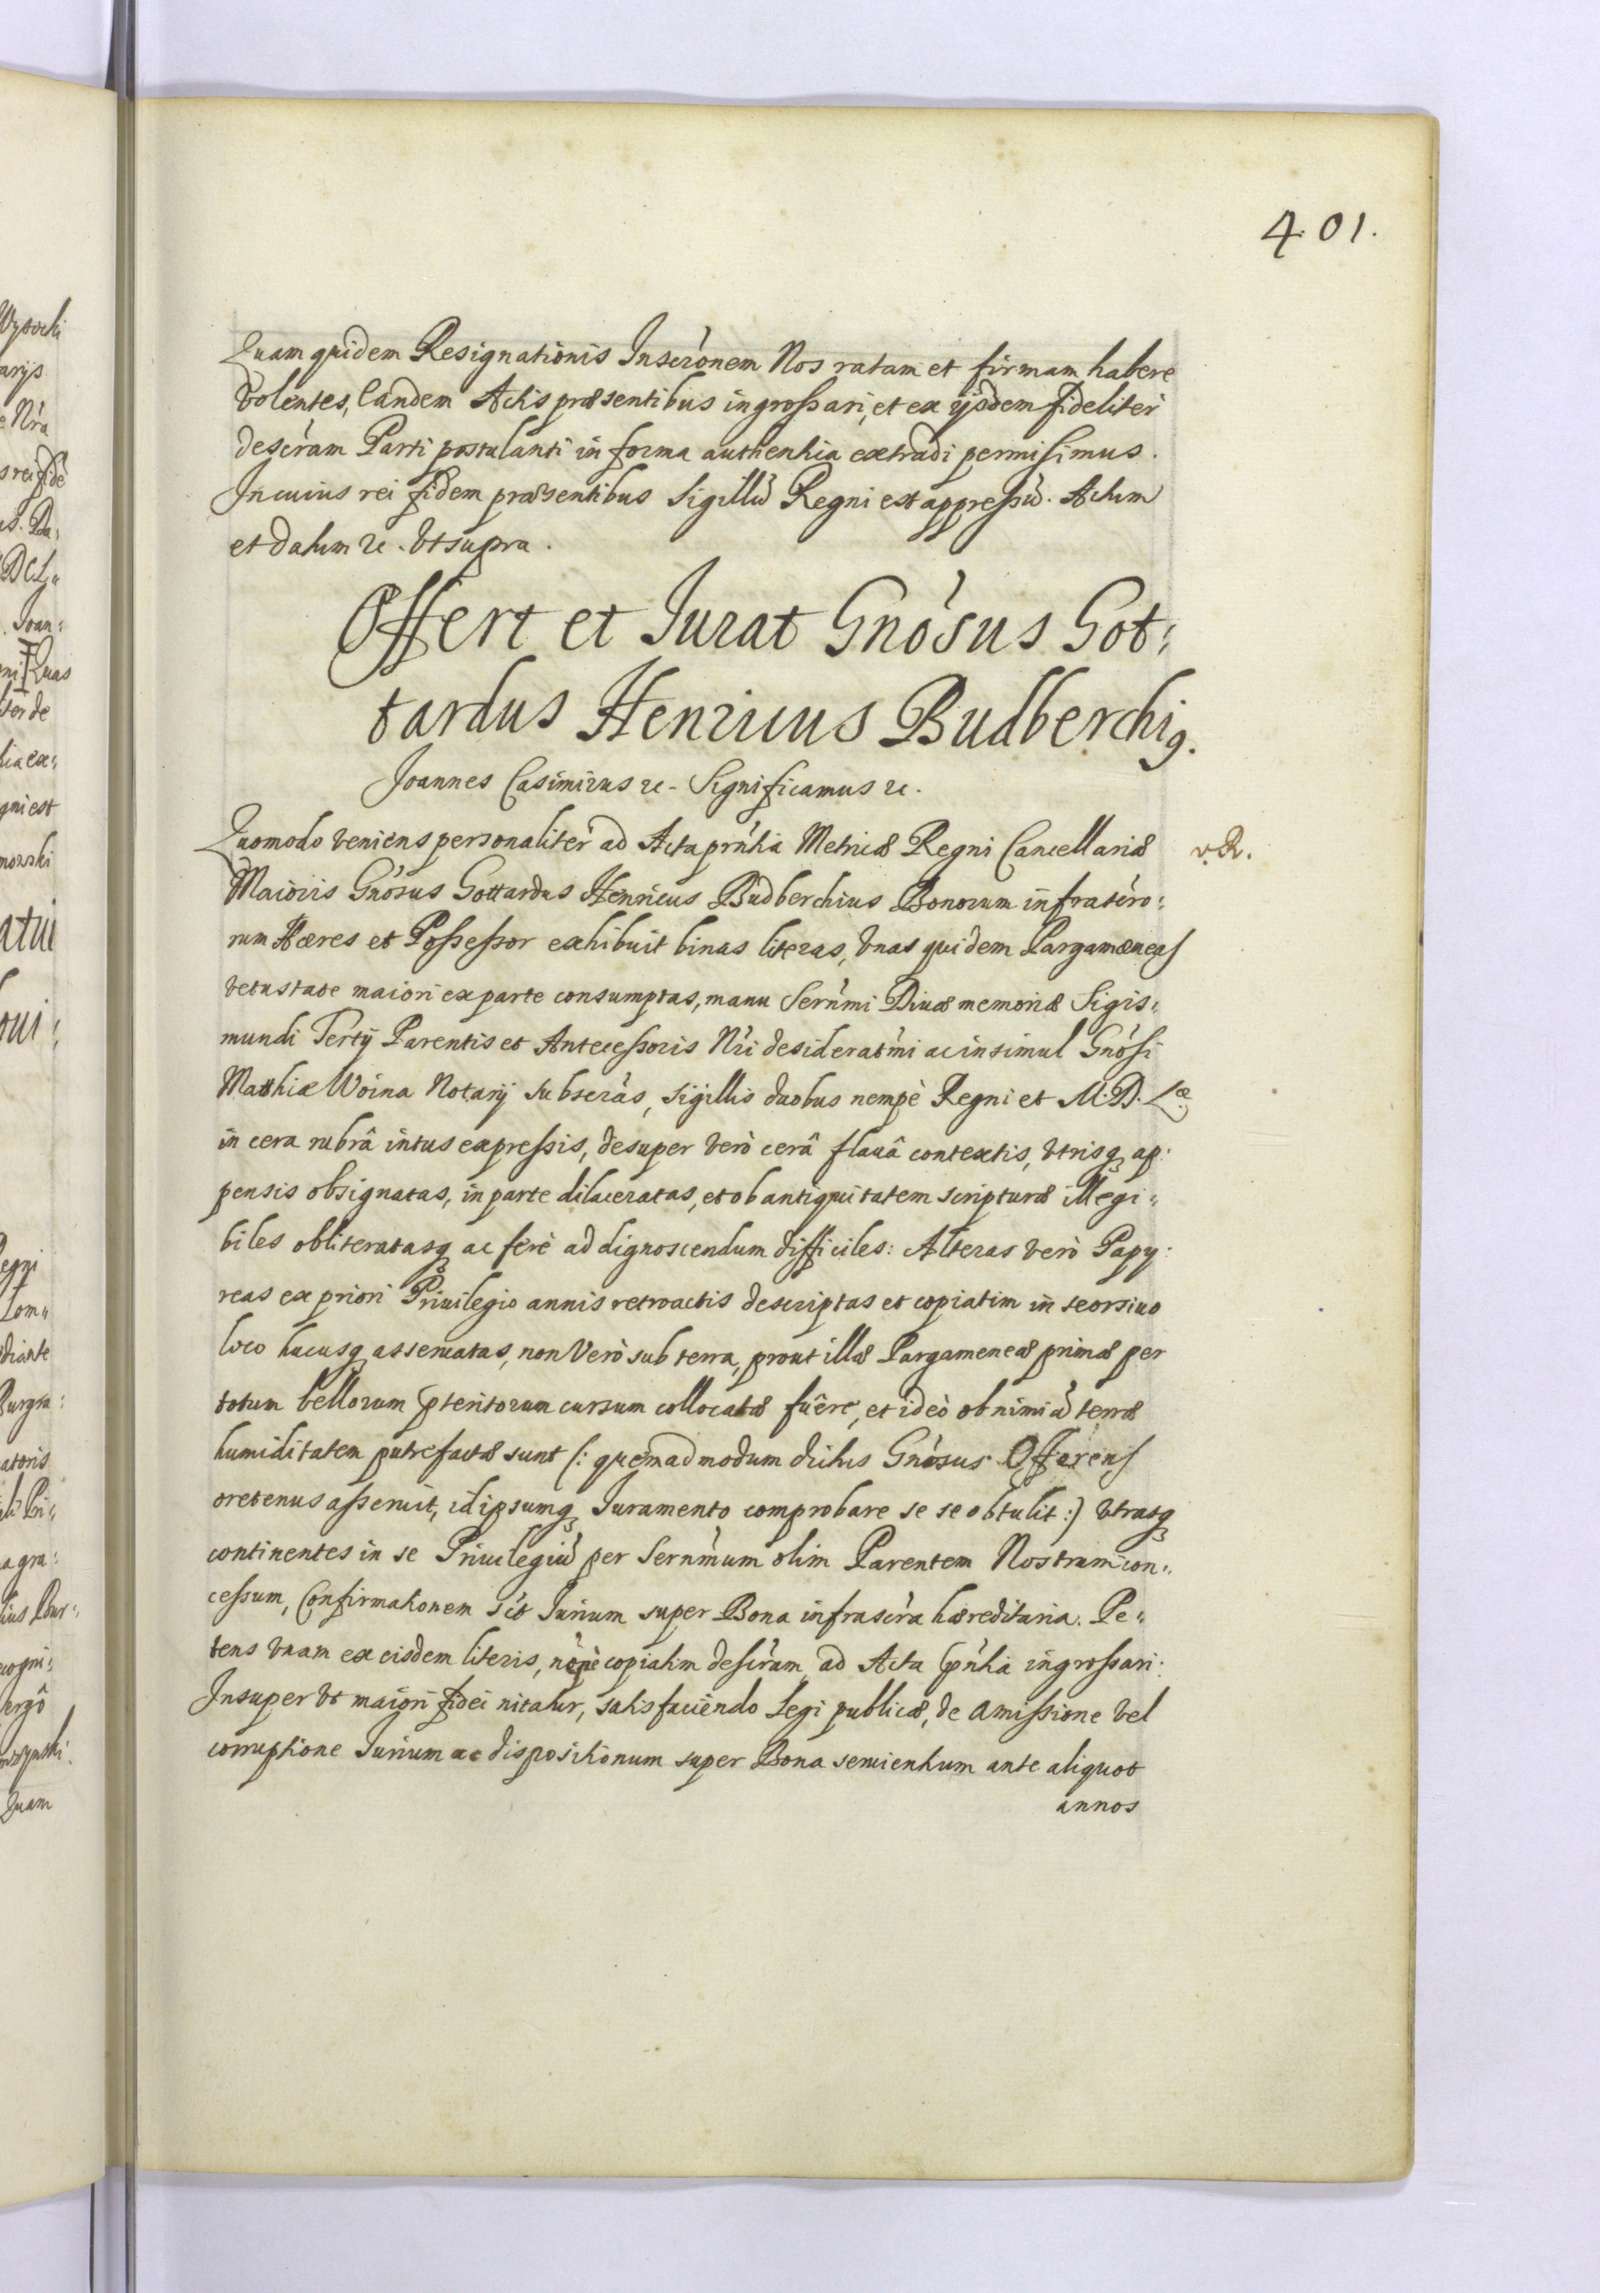 401.
Quam quidem Resignationis Inscrònem Nos ratam et firmam habere
Volentes, Eandem Actis præsentibus ingrossari, et ex ijsdem fideliter
descràm Parti postulanti in forma authentica extradi permisimus.
In cuius rei fidem præsentibus Sigillũ Regni est appressũ. Actum
et datum &c. Vt supra.
Offert et Jurat Gnòsus Got:
tardus Henricus Budberchig.
Joannes Casimirus &c. Significamus &c.
Quomodo veniens personaliter ad Acta prńtia Metricæ Regni Cancellariæ
v.R.
Maioris Gnòsus Gottardus Henricus Budberchius Bonorum infrascèro:
rum Hæres et Possessor exhibuit binas literas, Vnas quidem Pargamæneas
vetustate maiori ex parte consumptas, manu Serńmi Diuæ memoriæ Sigis:
mundi Tertij Parentis et Antecessoris Nri desideratmi ac insimul Gnòsi
Matthiæ Woina Notarij subscràs, sigillis duobus nempè Regni et M.D.Læ
in cera rubrâ intus expressis, desuper verò cerâ flauâ contextis, vtrisq ap:
pensis obsignatas, in parte dilaceratas, et ob antiquitatem scripturæ illegi:
biles obliteratasq ac ferè ad dignoscendum difficiles: Alteras verò Papy:
reas ex priori Priuilegio annis retroactis descriptas et copiatim in seorsiuo
loco hucusq asseruatas, non Verò sub terra, prout illæ Pargameneæ primæ per
totum bellorum pteritorum cursum collocatæ fuêre, et ideò ob nimiã terræ
humiditatem putrefactæ sunt (: quemadmodum dictus Gnòsus Offerens
oretenus asseruit, idipsumq Juramento comprobare se se obtulit :) vtrasq
continentes in se Priuilegiũ per Serńmum olim Parentem Nostrum con:
cessum, Confirmationem sèt Jurium super Bona infrascràa hæreditaria. Pe:
tens vnam ex eisdem literis, nempè copiatim descràm, ad Acta pńtia ingrossari:
Insuper vt maiori fidei nitatur, satisfaciendo Legi publicæ, de amissione vel
corruptione Jurium ac dispositionum super Bona seruientium ante aliquot
annos